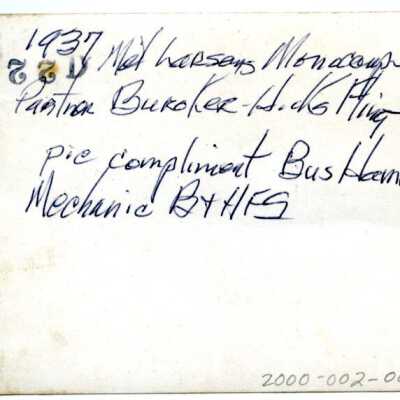 1937 Mel Larsons Monocoupe
Partner Buroker-Hicks Flying
pic compliment Bus Ham
Mechanic B+HFS
2000-002-0